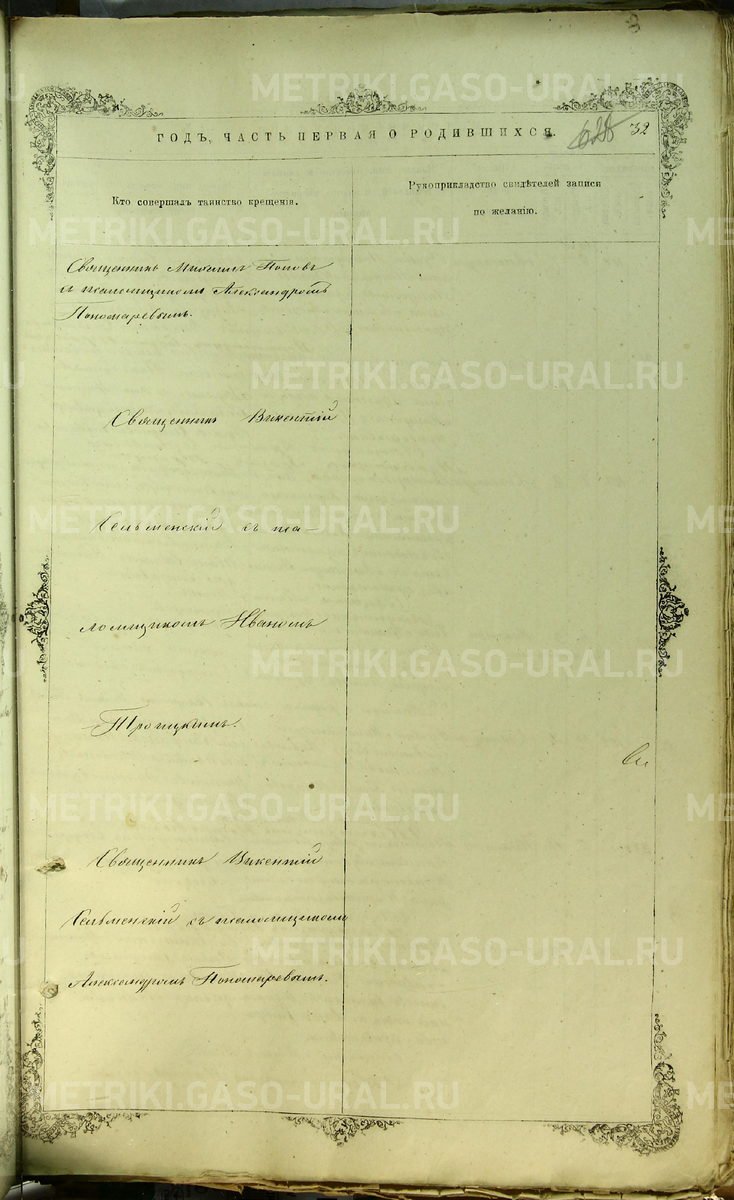 ГОДЪ, ЧАСТЬ ПЕРВАЯ О РОДИВШИХСЯ.
32
Кто совершалъ таинство крещенія.
Рукоприкладство свидѣтелей записи
по желанію.
Священникъ Михаилъ Поповъ
съ псаломщикомъ Александромъ
Пономаревымъ.
Священникъ Викентій
Сельменскій съ пса-
ломщикомъ Иваномъ
Троицкимъ.
Священникъ Викентій
Сельменскій съ псаломщикомъ
Александромъ Пономаревымъ.
METRIKI.GASO-URAL.RU